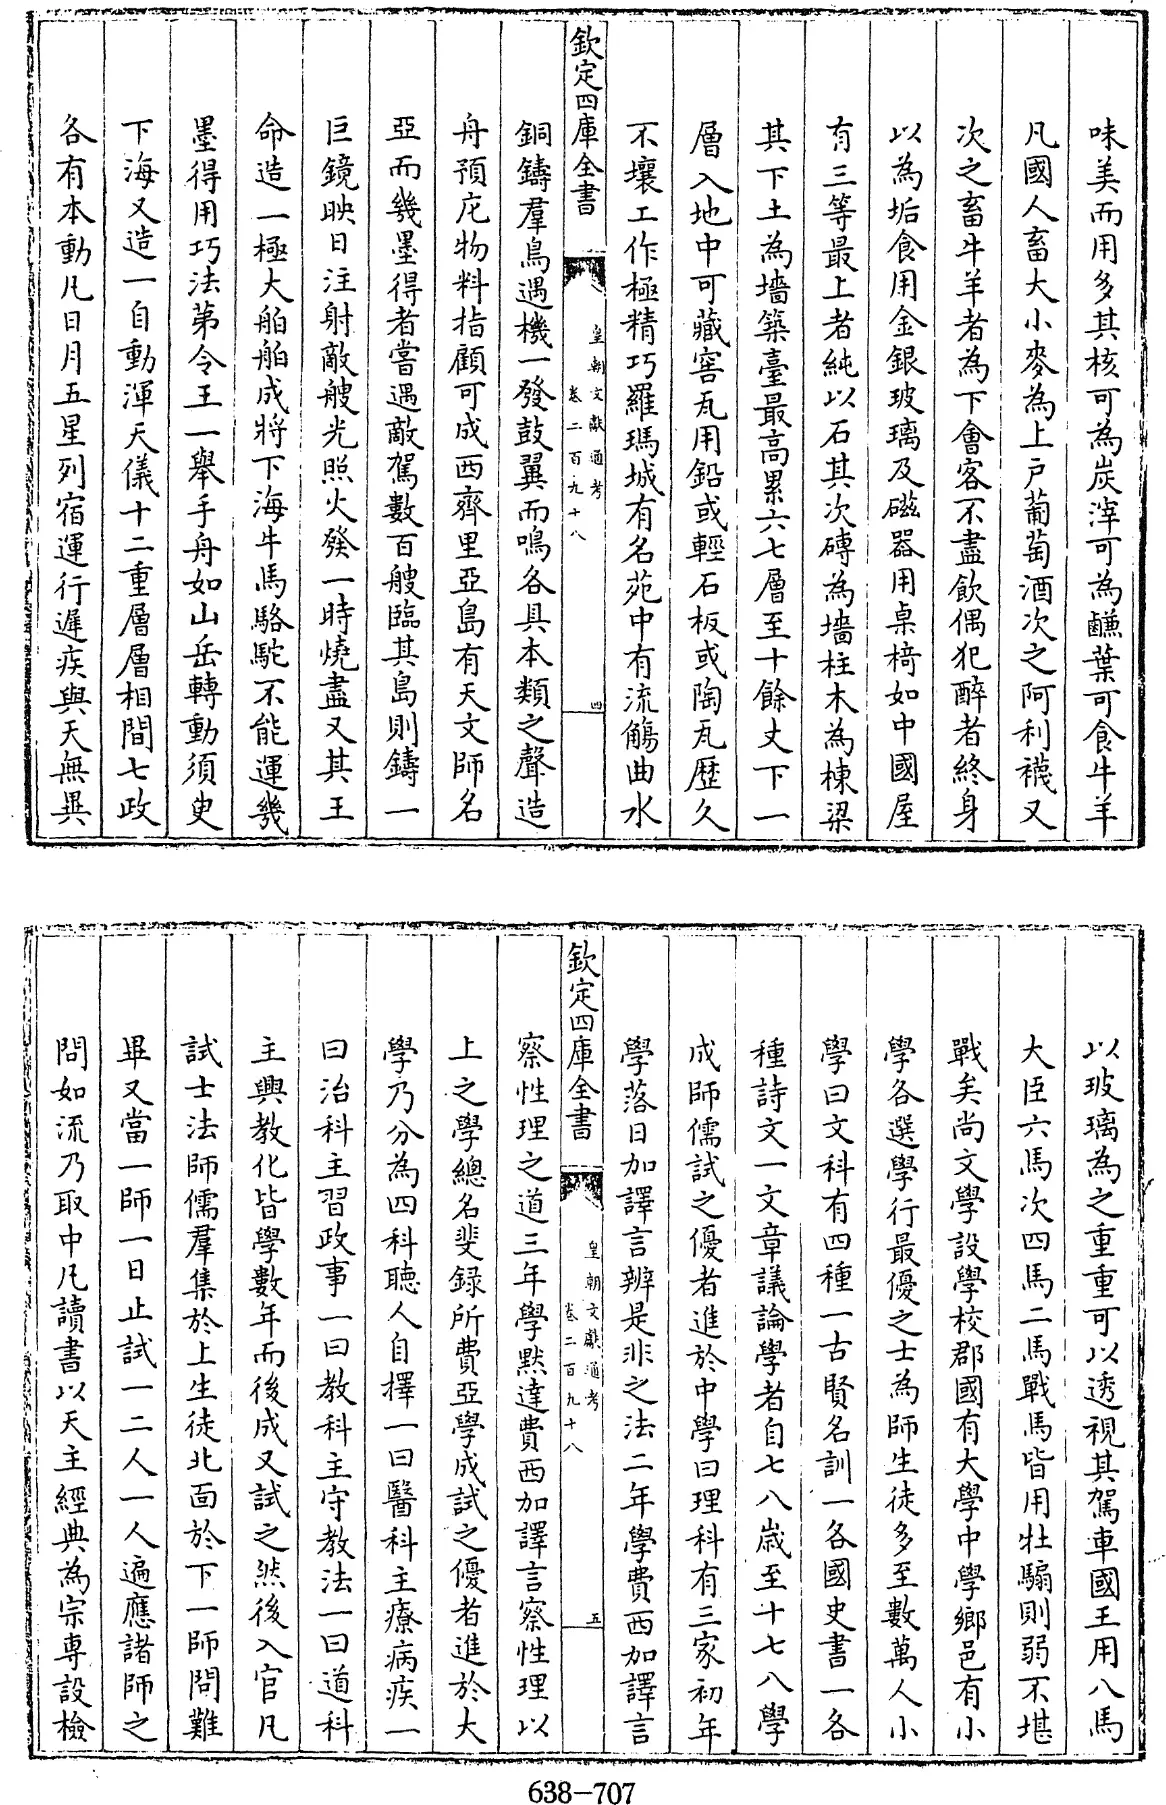 味美而用多其核可為炭滓可為鹻葉可食牛羊
凡國人畜大小麥為上戸葡萄酒次之阿利襪又
次之畜牛羊者為下會客不盡飲偶犯醉者終身
以為垢食用金銀玻璃及磁器用桌椅如中國屋
有三等最上者純以石其次磚為墻柱木為棟梁
其下土為墻築臺最高累六七層至十餘丈下一
層入地中可藏窖瓦用鉛或輕石板或陶瓦歷久
不壞工作極精巧羅瑪城有名苑中有流觴曲水
欽定四庫全書
皇朝文獻通考
卷二百九十八
四
銅鑄羣鳥遇機一發鼓翼而鳴各具本類之聲造
舟預庀物料指顧可成西齊里亞島有天文師名
亞而幾墨得者當遇敵駕數百艘臨其島則鑄一
巨鏡映日注射敵艘光照火發一時燒盡又其王
命造一極大舶舶成將下海牛馬駱駝不能運幾
墨得用巧法第令王一舉手舟如山岳轉動須臾
下海又造一自動渾天儀十二重層層相間七政
各有本動凡日月五星列宿運行遲疾與天無異
以玻璃為之重重可以透視其駕車國王用八馬
大臣六馬次四馬二馬戰馬皆用牡騸則弱不堪
戰矣尚文學設學校郡國有大學中學鄉邑有小
學各選學行最優之士為師生徒多至數萬人小
學曰文科有四種一古賢名訓一各國史書一各
種詩文一文章議論學者自七八歲至十七八學
成師儒試之優者進於中學曰理科有三家初年
學落日加譯言辨是非之法二年學費西加譯言
欽定四庫全書
皇朝文獻通考
卷二百九十八
五
察性理之道三年學黙達費西加譯言察性理以
上之學總名斐錄所費亞學成試之優者進於大
學乃分為四科聽人自擇一曰醫科主療病疾一
曰治科主習政事一曰教科主守教法一曰道科
主興教化皆學數年而後成又試之然後入官凡
試士法師儒羣集於上生徒北面於下一師問難
畢又當一師一日止試一二人一人遍應諸師之
問如流乃取中凡讀書以天主經典為宗專設檢
638-707